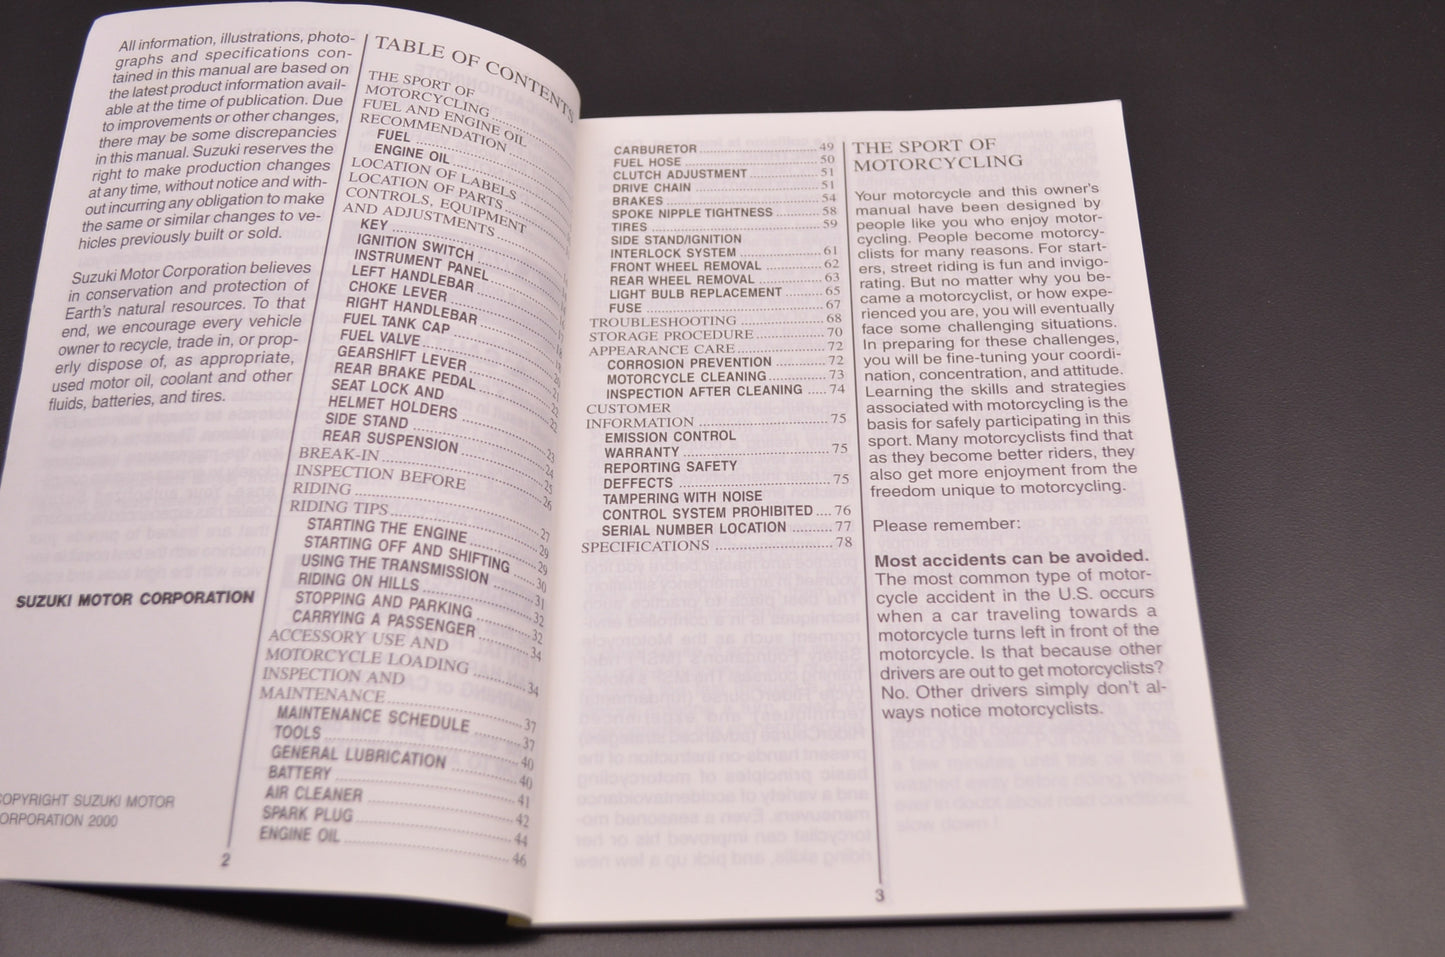 All information, illustrations, photo-
graphs and specifications con-
tained in this manual are based on
the latest product information avail-
able at the time of publication. Due
to improvements or other changes,
there may be some discrepancies
in this manual. Suzuki reserves the
right to make production changes
at any time, without notice and with-
out incurring any obligation to make
the same or similar changes to ve-
hicles previously built or sold.
Suzuki Motor Corporation believes
in conservation and protection of
Earth's natural resources. To that
end, we encourage every vehicle
owner to recycle, trade in, or prop-
erly dispose of, as appropriate,
used motor oil, coolant and other
fluids, batteries, and tires.
SUZUKI MOTOR CORPORATION
COPYRIGHT SUZUKI MOTOR
CORPORATION 2000
TABLE OF CONTENTS
THE SPORT OF
MOTORCYCLING
FUEL AND ENGINE OIL
RECOMMENDATION
FUEL
ENGINE OIL
LOCATION OF LABELS
LOCATION OF PARTS
CONTROLS, EQUIPMENT
AND ADJUSTMENTS
KEY
IGNITION SWITCH
INSTRUMENT PANEL
LEFT HANDLEBAR
CHOKE LEVER
RIGHT HANDLEBAR
FUEL TANK CAP
FUEL VALVE
GEARSHIFT LEVER
REAR BRAKE PEDAL
SEAT LOCK AND
HELMET HOLDERS
SIDE STAND
REAR SUSPENSION
BREAK-IN
INSPECTION BEFORE
RIDING
RIDING TIPS 27
STARTING THE ENGINE 29
STARTING OFF AND SHIFTING 29
USING THE TRANSMISSION 30
RIDING ON HILLS 31
STOPPING AND PARKING 32
CARRYING A PASSENGER 32
ACCESSORY USE AND 34
MOTORCYCLE LOADING 34
INSPECTION AND
MAINTENANCE 37
MAINTENANCE SCHEDULE 37
TOOLS 40
GENERAL LUBRICATION 40
BATTERY 41
AIR CLEANER 42
SPARK PLUG 44
ENGINE OIL 46
2
CARBURETOR 49
FUEL HOSE 50
CLUTCH ADJUSTMENT 51
DRIVE CHAIN 51
BRAKES 54
SPOKE NIPPLE TIGHTNESS 58
TIRES 59
SIDE STAND/IGNITION
INTERLOCK SYSTEM 61
FRONT WHEEL REMOVAL 62
REAR WHEEL REMOVAL 63
LIGHT BULB REPLACEMENT 65
FUSE 67
TROUBLESHOOTING 68
STORAGE PROCEDURE 70
APPEARANCE CARE 72
CORROSION PREVENTION 72
MOTORCYCLE CLEANING 73
INSPECTION AFTER CLEANING 74
CUSTOMER
INFORMATION 75
EMISSION CONTROL
WARRANTY 75
REPORTING SAFETY
DEFFECTS 75
TAMPERING WITH NOISE
CONTROL SYSTEM PROHIBITED 76
SERIAL NUMBER LOCATION 77
SPECIFICATIONS 78
THE SPORT OF
MOTORCYCLING
Your motorcycle and this owner's
manual have been designed by
people like you who enjoy motor-
cycling. People become motorcy-
clists for many reasons. For start-
ers, street riding is fun and invigo-
rating. But no matter why you be-
came a motorcyclist, or how expe-
rienced you are, you will eventually
face some challenging situations.
In preparing for these challenges,
you will be fine-tuning your coordi-
nation, concentration, and attitude.
Learning the skills and strategies
associated with motorcycling is the
basis for safely participating in this
sport. Many motorcyclists find that
as they become better riders, they
also get more enjoyment from the
freedom unique to motorcycling.
Please remember:
Most accidents can be avoided.
The most common type of motor-
cycle accident in the U.S. occurs
when a car traveling towards a
motorcycle turns left in front of the
motorcycle. Is that because other
drivers are out to get motorcyclists?
No. Other drivers simply don't al-
ways notice motorcyclists.
3